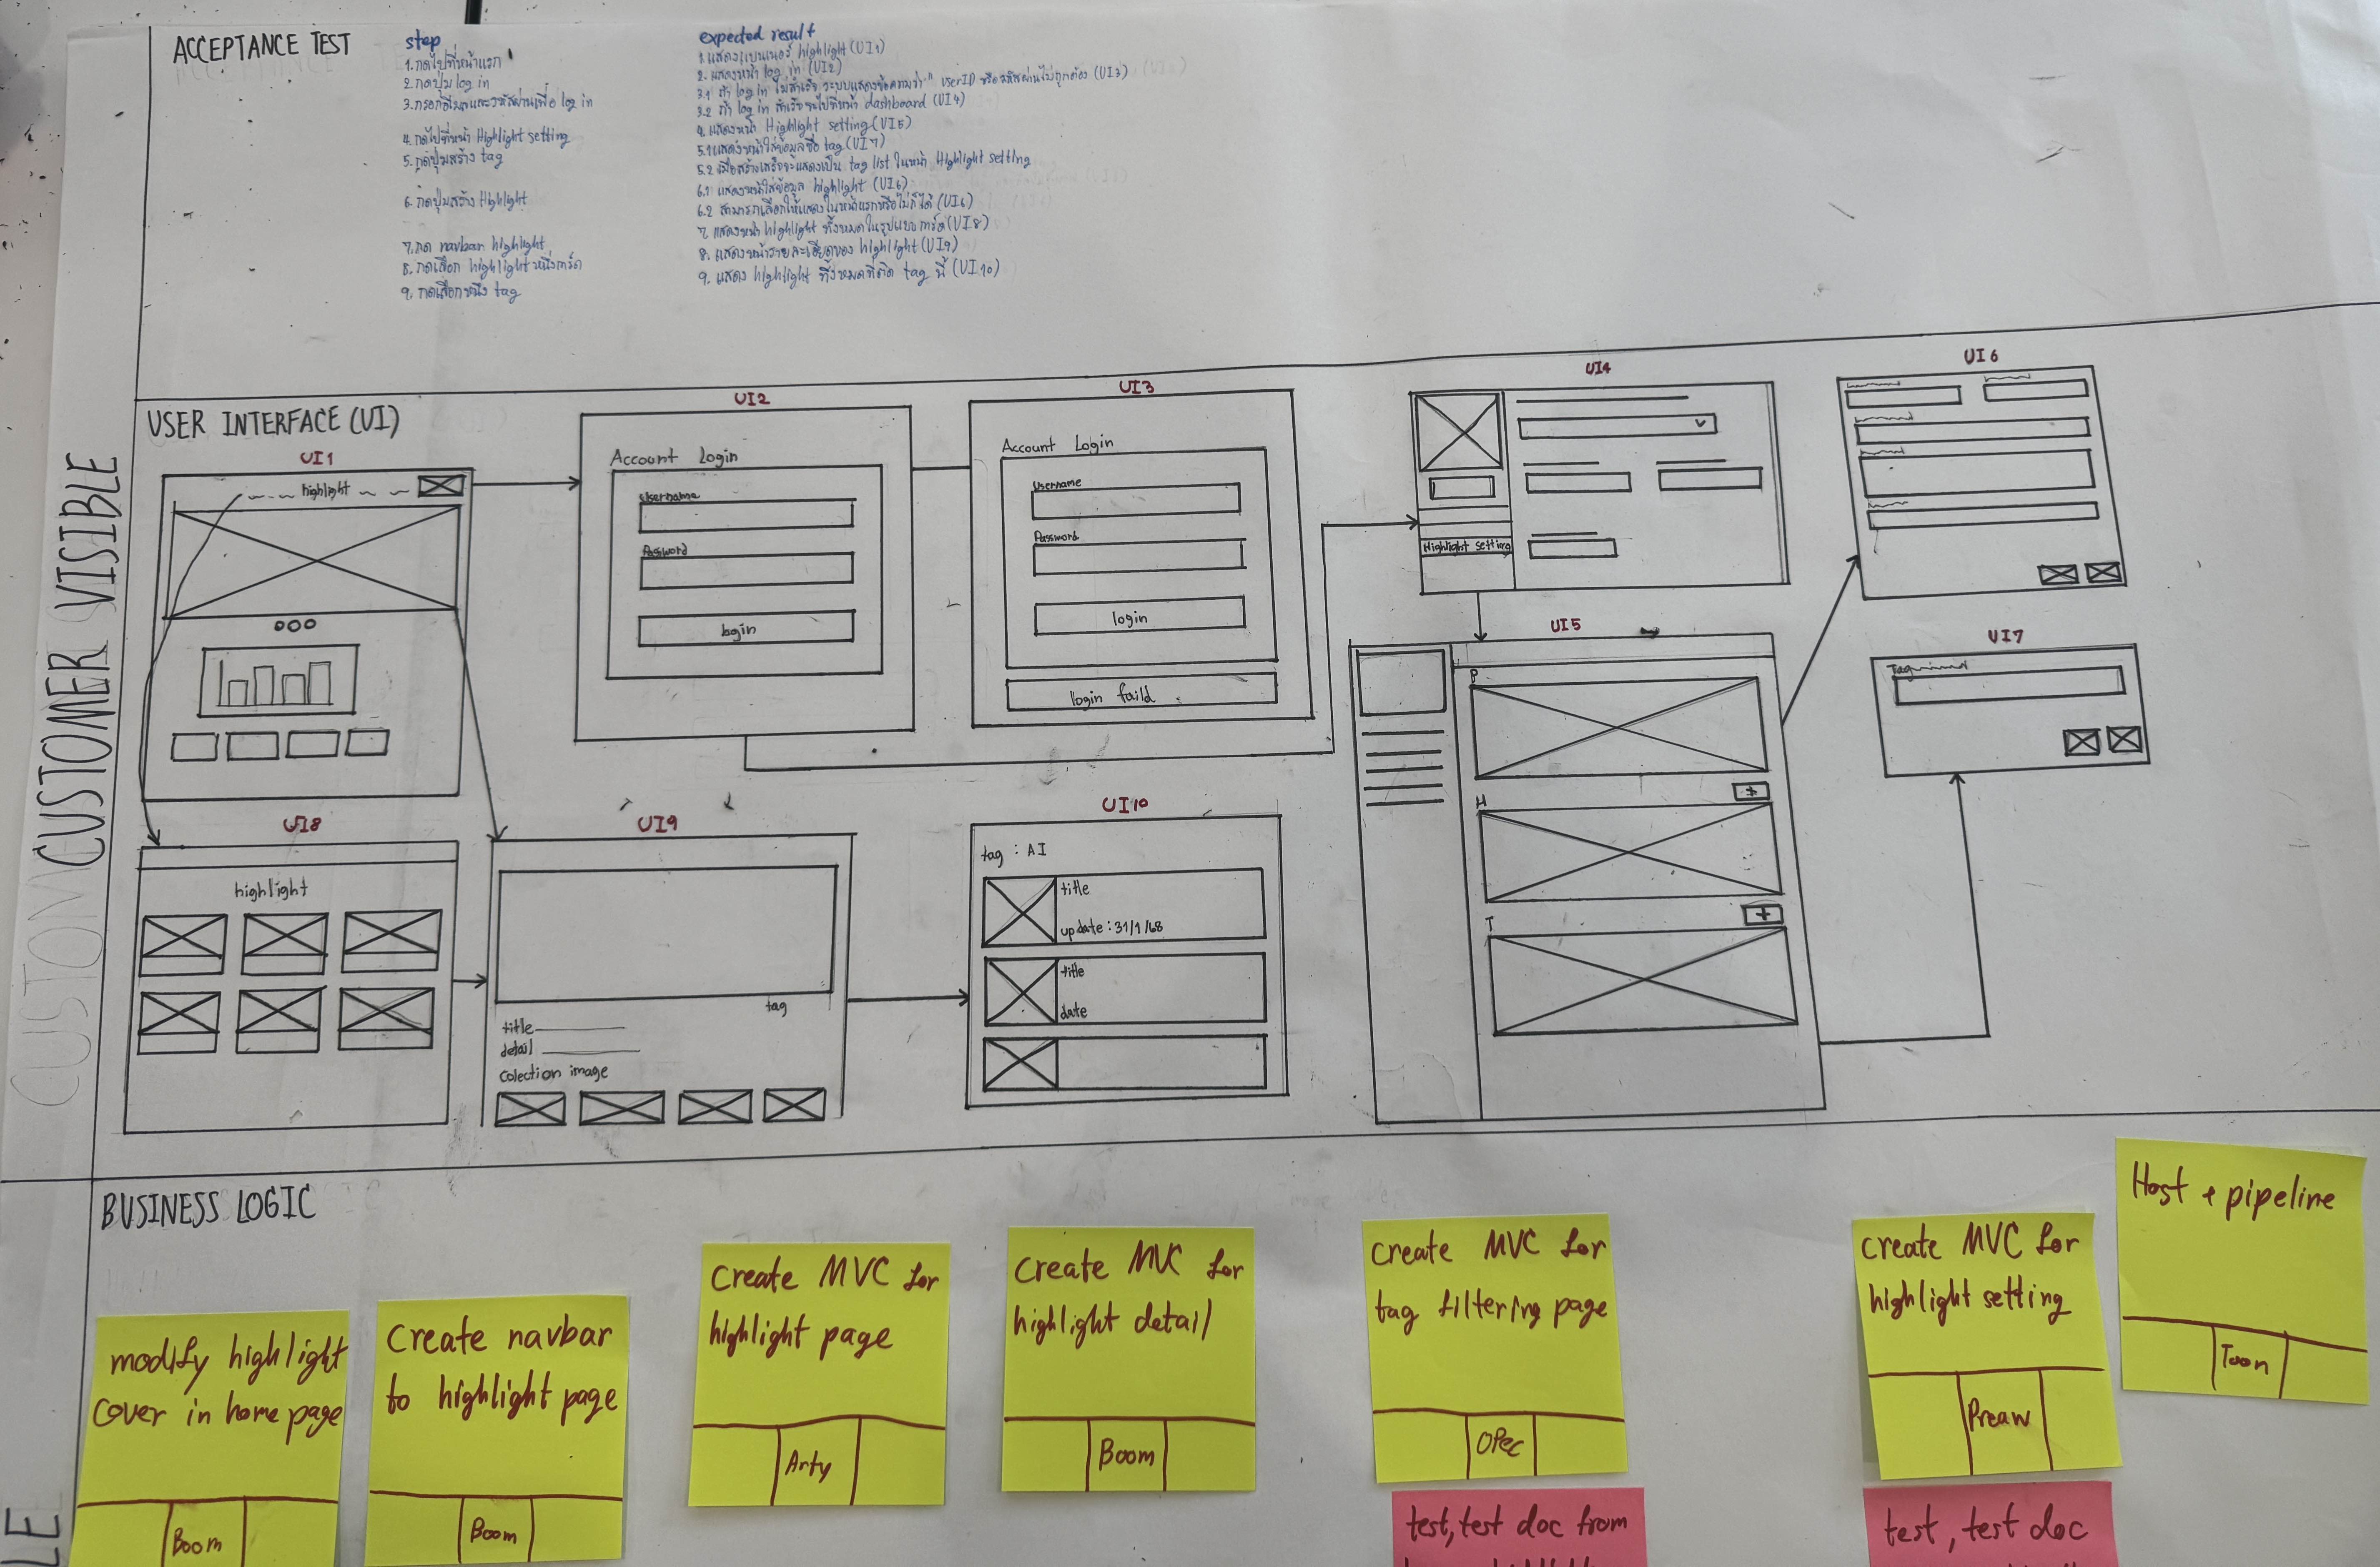 ACCEPTANCE TEST
step
1. กดไปที่หน้าแรก
2. กดปุ่ม log in
3. กรอกอีเมลและรหัสผ่านเพื่อ log in
4. กดไปที่หน้า Highlight setting
5. กดปุ่มสร้าง tag
6. กดปุ่มสร้าง Highlight
7. กด navbar highlight
8. กดเลือก highlight หนึ่งการ์ด
9. กดเลือกหนึ่ง tag
expected result
1. แสดงแบนเนอร์ highlight (UI1)
2. แสดงหน้า log in (UI2)
3.1 ถ้า log in ไม่สำเร็จ ระบบแสดงข้อความว่า " userID หรือรหัสผ่านไม่ถูกต้อง (UI3)
3.2 ถ้า log in สำเร็จจะไปที่หน้า dashboard (UI4)
4. แสดงหน้า Highlight setting (UI5)
5.1 แสดงหน้าใส่ข้อมูลชื่อ tag (UI7)
5.2 เมื่อสร้างเสร็จจะแสดงเป็น tag list ในหน้า Highlight setting
6.1 แสดงหน้าใส่ข้อมูล highlight (UI6)
6.2 สามารถเลือกให้แสดงในหน้าแรกหรือไม่ก็ได้ (UI6)
7. แสดงหน้า highlight ทั้งหมดในรูปแบบการ์ด (UI8)
8. แสดงหน้ารายละเอียดของ highlight (UI9)
9. แสดง highlight ทั้งหมดที่ติด tag นี้ (UI10)
CUSTOMER VISIBLE
CUSTOM
USER INTERFACE (UI)
UI1
highlight
UI2
Account Login
Username
Password
login
UI3
Account Login
Username
Password
login
login faild
UI4
Highlight setting
UI5
P
+
H
+
T
UI6
UI7
Tag
UI8
highlight
UI9
tag
title
detail
colection image
UI10
tag : AI
title
update : 31/1/68
title
date
BUSINESS LOGIC
modify highlight
cover in home page
Boom
create navbar
to highlight page
Boom
create MVC for
highlight page
Arty
create MVC for
highlight detail
Boom
create MVC for
tag filtering page
OPEC
test, test doc from
create MVC for
highlight setting
Preaw
test, test doc
Host + pipeline
Toon
LE